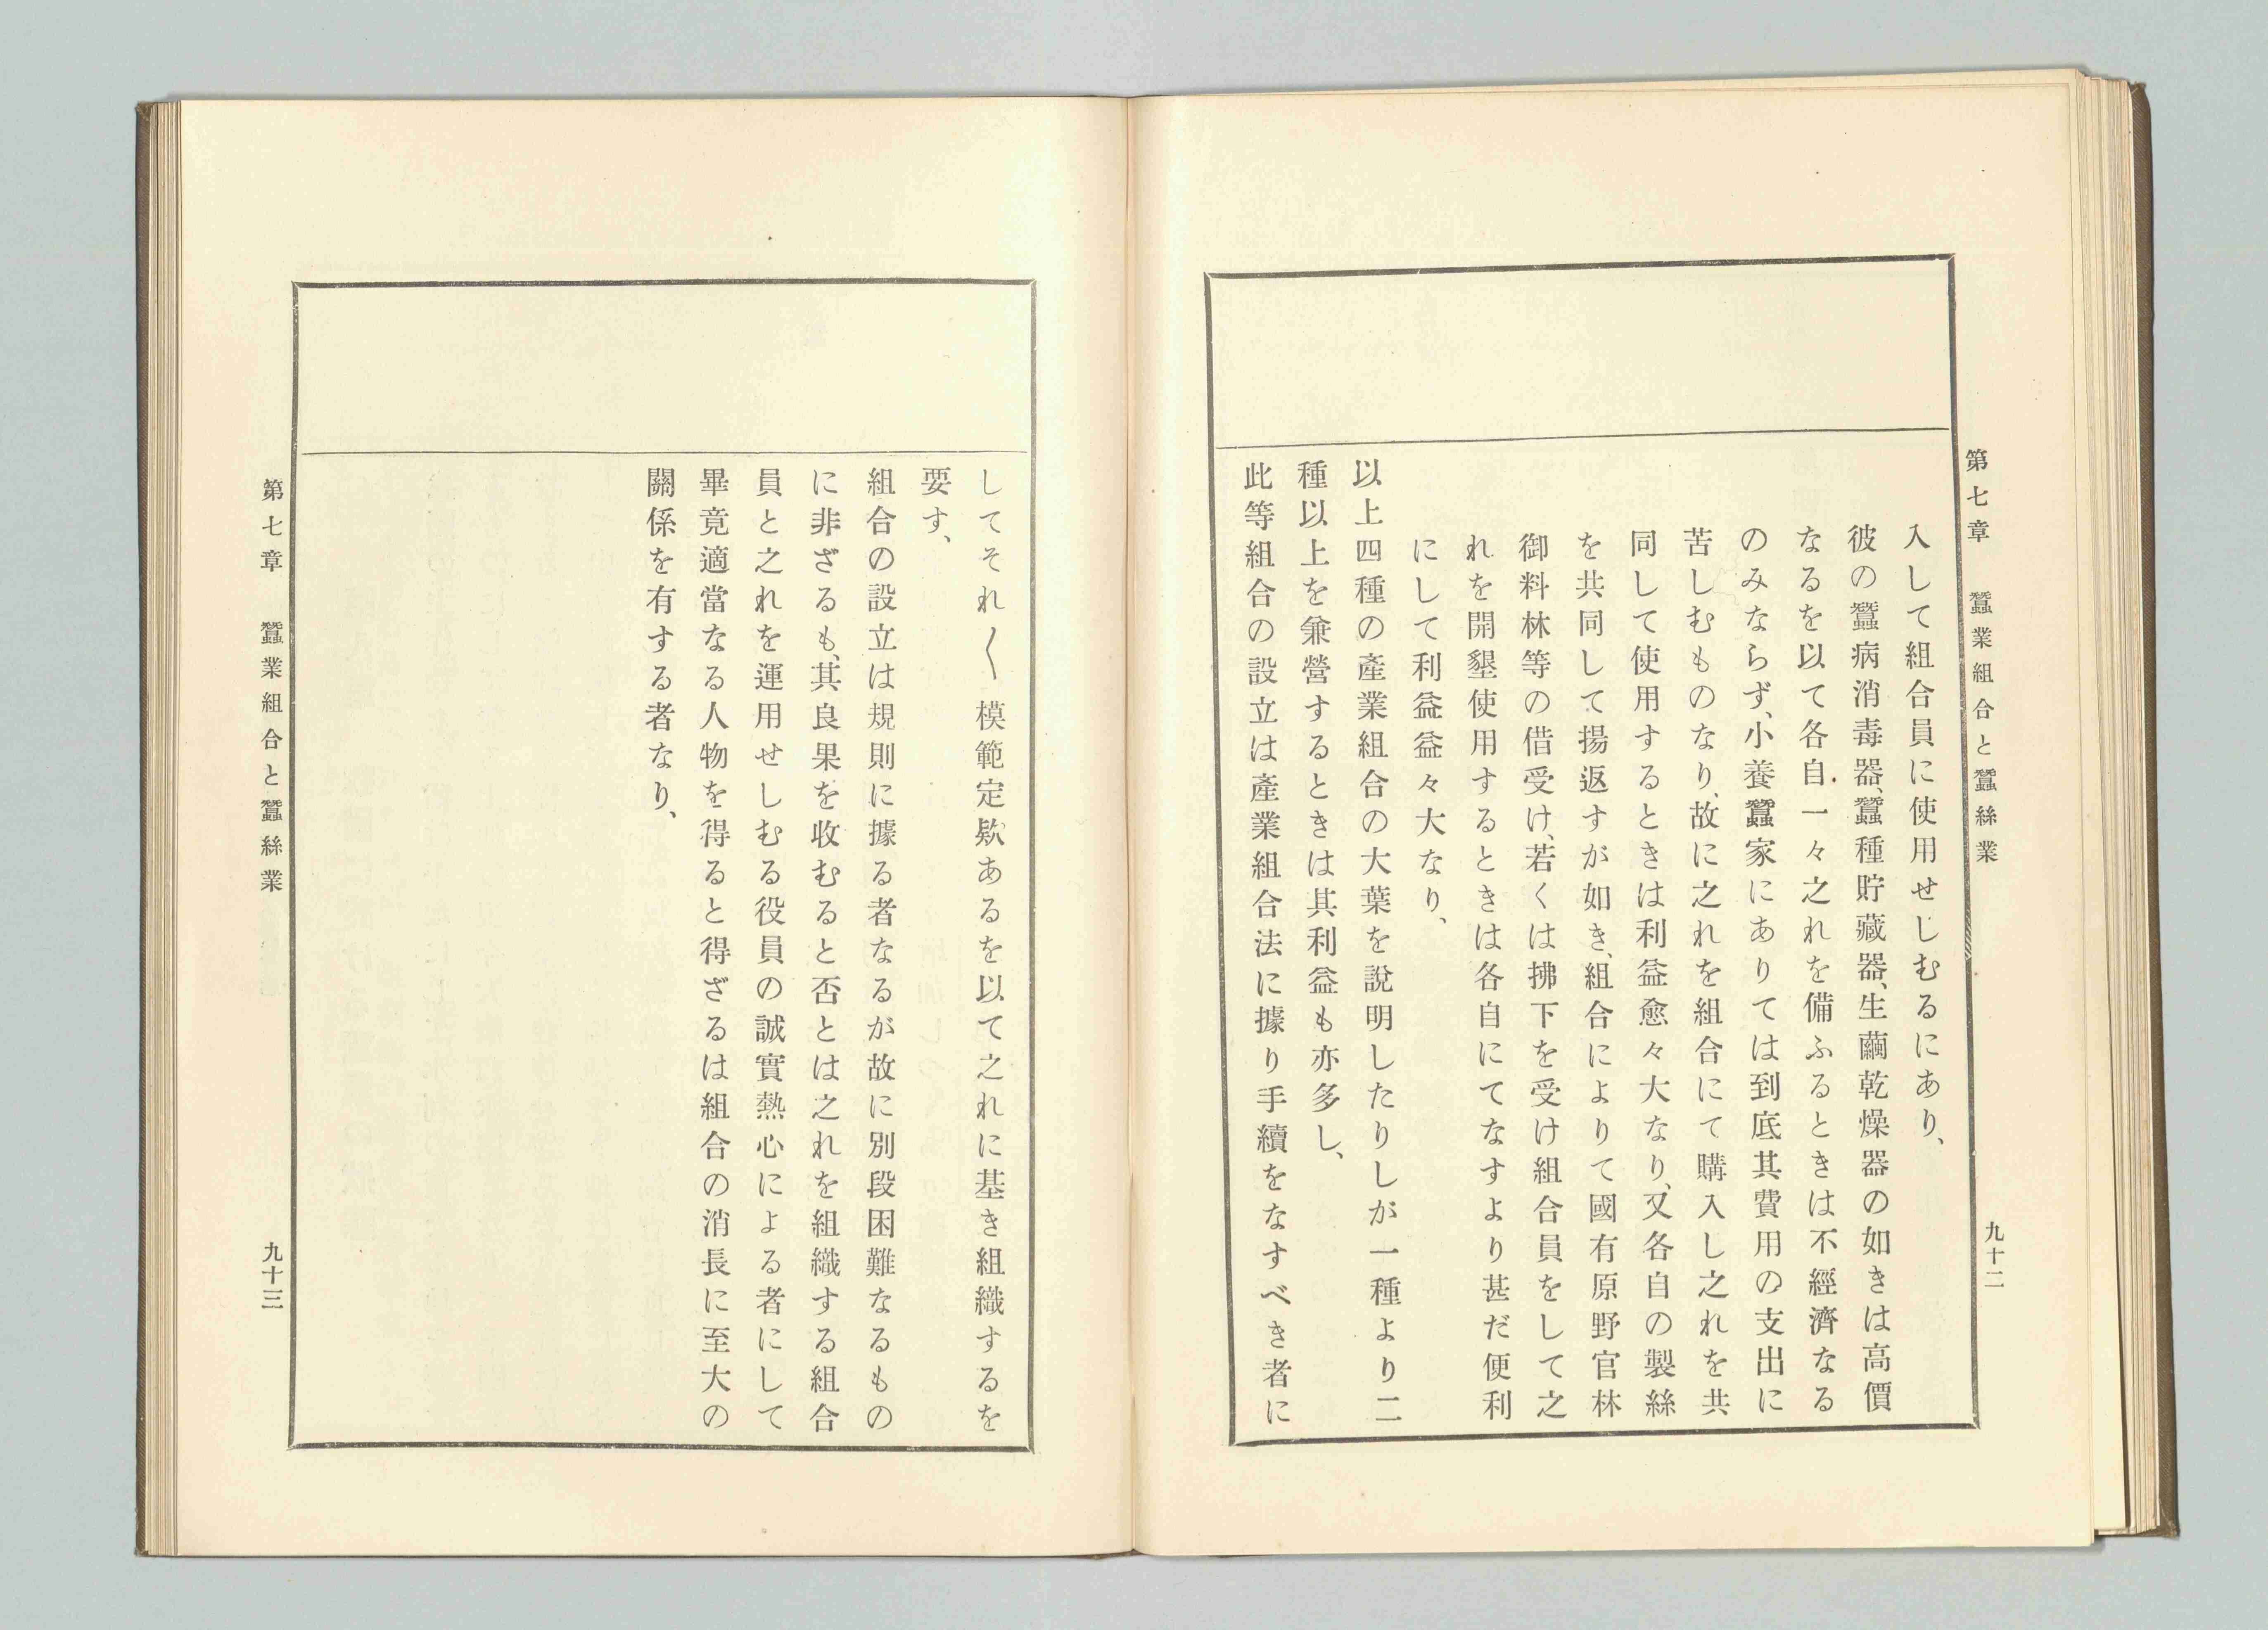 第七章　蠶業組合と蠶絲業
九十二
入して組合員に使用せしむるにあり、
彼の蠶病消毒器、蠶種貯藏器、生繭乾燥器の如きは高價
なるを以て各自一々之れを備ふるときは不經濟なる
のみならず、小養蠶家にありては到底其費用の支出に
苦しむものなり、故に之れを組合にて購入し之れを共
同して使用するときは利益愈々大なり、又各自の製絲
を共同して揚返すが如き、組合によりて國有原野官林
御料林等の借受け、若くは拂下を受け組合員をして之
れを開墾使用するときは各自にてなすより甚だ便利
にして利益益々大なり、
以上四種の産業組合の大葉を說明したりしが一種より二
種以上を兼營するときは其利益も亦多し、
此等組合の設立は産業組合法に據り手續をなすべき者に
してそれ〱模範定欵あるを以て之れに基き組織するを
要す、
組合の設立は規則に據る者なるが故に別段困難なるもの
に非ざるも、其良果を收むると否とは之れを組織する組合
員と之れを運用せしむる役員の誠實熱心による者にして
畢竟適當なる人物を得ると得ざるは組合の消長に至大の
關係を有する者なり、
第七章　蠶業組合と蠶絲業
九十三